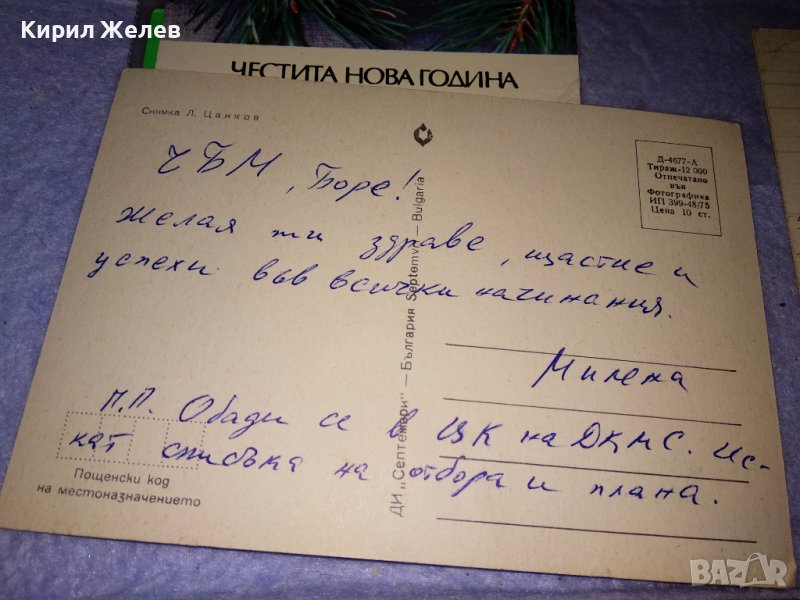 Кирил Желев
ЧЕСТИТА НОВА ГОДИНА
Снимка Л. Цанков
Д-4677-А
Тираж-12 000
Отпечатано
във
Фотографика
ИП 399-48/75
Цена 10 ст.
ЧБМ, Боре!
желая ти здраве, щастие и
успехи във всички начинания.
Милена
П.П. Обади се в ЦК на ДКМС. Ис-
кат списъка на отбора и плана.
Пощенски код
на местоназначението
ДИ „Септември" — България Septemvri — Bulgaria
BAZAR